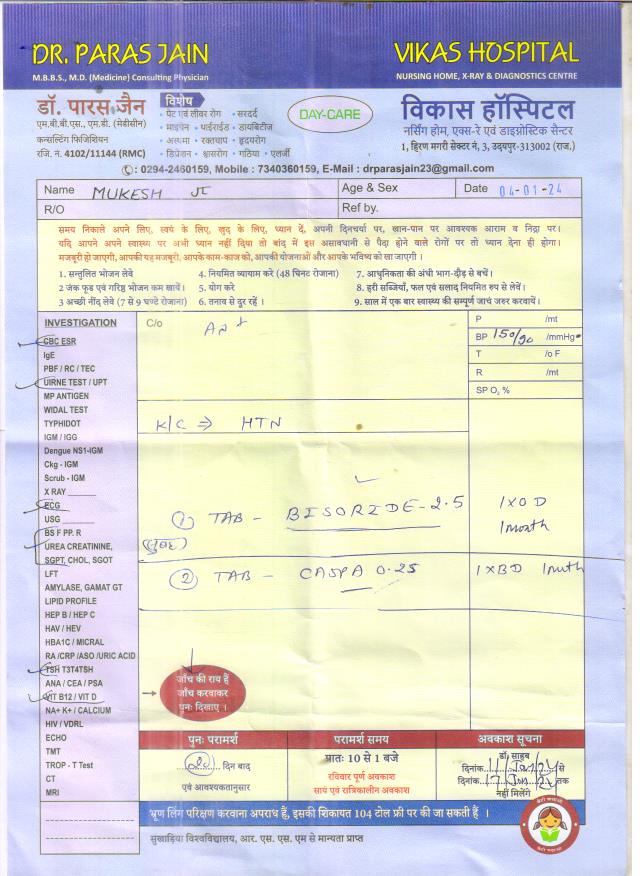 DR. PARAS JAIN
M.B.B.S., M.D. (Medicine) Consulting Physician
VIKAS HOSPITAL
NURSING HOME, X-RAY & DIAGNOSTICS CENTRE
डॉ. पारस जैन
एम.बी.बी.एस., एम.डी. (मेडीसीन)
कन्सल्टिंग फिजिशियन
रजि. नं. 4102/11144 (RMC)
विशेष
• पेट एवं लीवर रोग • सरदर्द
• माइग्रेन • थाईराईड • डायबिटीज
• अस्थमा • रक्तचाप • हृदयरोग
• डिप्रेशन • श्वासरोग • गठिया • एलर्जी
DAY-CARE
विकास हॉस्पिटल
नर्सिंग होम, एक्स-रे एवं डाइग्नोस्टिक सेन्टर
1, हिरण मगरी सेक्टर नं. 3, उदयपुर-313002 (राज.)
: 0294-2460159, Mobile : 7340360159, E-Mail : drparasjain23@gmail.com
Name MUKESH JI
Age & Sex
Date 04-01-24
R/O
Ref by.
समय निकाले अपने लिए, स्वयं के लिए, खुद के लिए, ध्यान दें, अपनी दिनचर्या पर, खान-पान पर आवश्यक आराम व निद्रा पर।
यदि आपने अपने स्वास्थ्य पर अभी ध्यान नहीं दिया तो बाद में इस असावधानी से पैदा होने वाले रोगों पर तो ध्यान देना ही होगा।
मजबूरी हो जाएगी, आपकी यह मजबूरी, आपके काम-काज को, आपकी योजनाओं और आपके भविष्य को खा जाएगी।
1. सन्तुलित भोजन लेवे
2. जंक फूड एवं गरिष्ठ भोजन कम खावें।
3. अच्छी नींद लेवे (7 से 9 घण्टे रोजाना)
4. नियमित व्यायाम करे (48 मिनट रोजाना)
5. योग करे
6. तनाव से दूर रहें।
7. आधुनिकता की अंधी भाग-दौड़ से बचें।
8. हरी सब्जियाँ, फल एवं सलाद नियमित रुप से लेवें।
9. साल में एक बार स्वास्थ्य की सम्पूर्ण जाचं जरुर करवायें।
INVESTIGATION
CBC ESR
IgE
PBF / RC / TEC
UIRNE TEST / UPT
MP ANTIGEN
WIDAL TEST
TYPHIDOT
IGM / IGG
Dengue NS1-IGM
Ckg - IGM
Scrub - IGM
X RAY ______
ECG
USG ______
BS F PP. R
UREA CREATININE,
SGPT, CHOL, SGOT
LFT
AMYLASE, GAMAT GT
LIPID PROFILE
HEP B / HEP C
HAV / HEV
HBA1C / MICRAL
RA /CRP /ASO /URIC ACID
TSH T3T4TSH
ANA / CEA / PSA
VIT B12 / VIT D
NA+ K+ / CALCIUM
HIV / VDRL
ECHO
TMT
TROP - T Test
CT
MRI
C/o
P /mt
BP 150/90 /mmHg
T /o F
R /mt
SP O₂ %
K/C ⇒ HTN
① TAB - BISORIDE-2.5 1XOD
1 month
(सुबह)
② TAB - CASPA 0.25 1XBD 1 mnth
जाँच की राय हैं
जाँच करवाकर
पुनः दिखाए।
पुनः परामर्श
दिन बाद
एवं आवश्यकतानुसार
परामर्श समय
प्रातः 10 से 1 बजे
रविवार पूर्ण अवकाश
सायं एवं रात्रिकालीन अवकाश
अवकाश सूचना
डॉ. साहब
दिनांक 11 Jan 24 से
दिनांक 17 Jan 24 तक
नहीं मिलेंगे
भ्रूण लिंग परिक्षण करवाना अपराध हैं, इसकी शिकायत 104 टोल फ्री पर की जा सकती हैं ।
सुखाड़िया विश्वविद्यालय, आर. एस. एस. एम से मान्यता प्राप्त